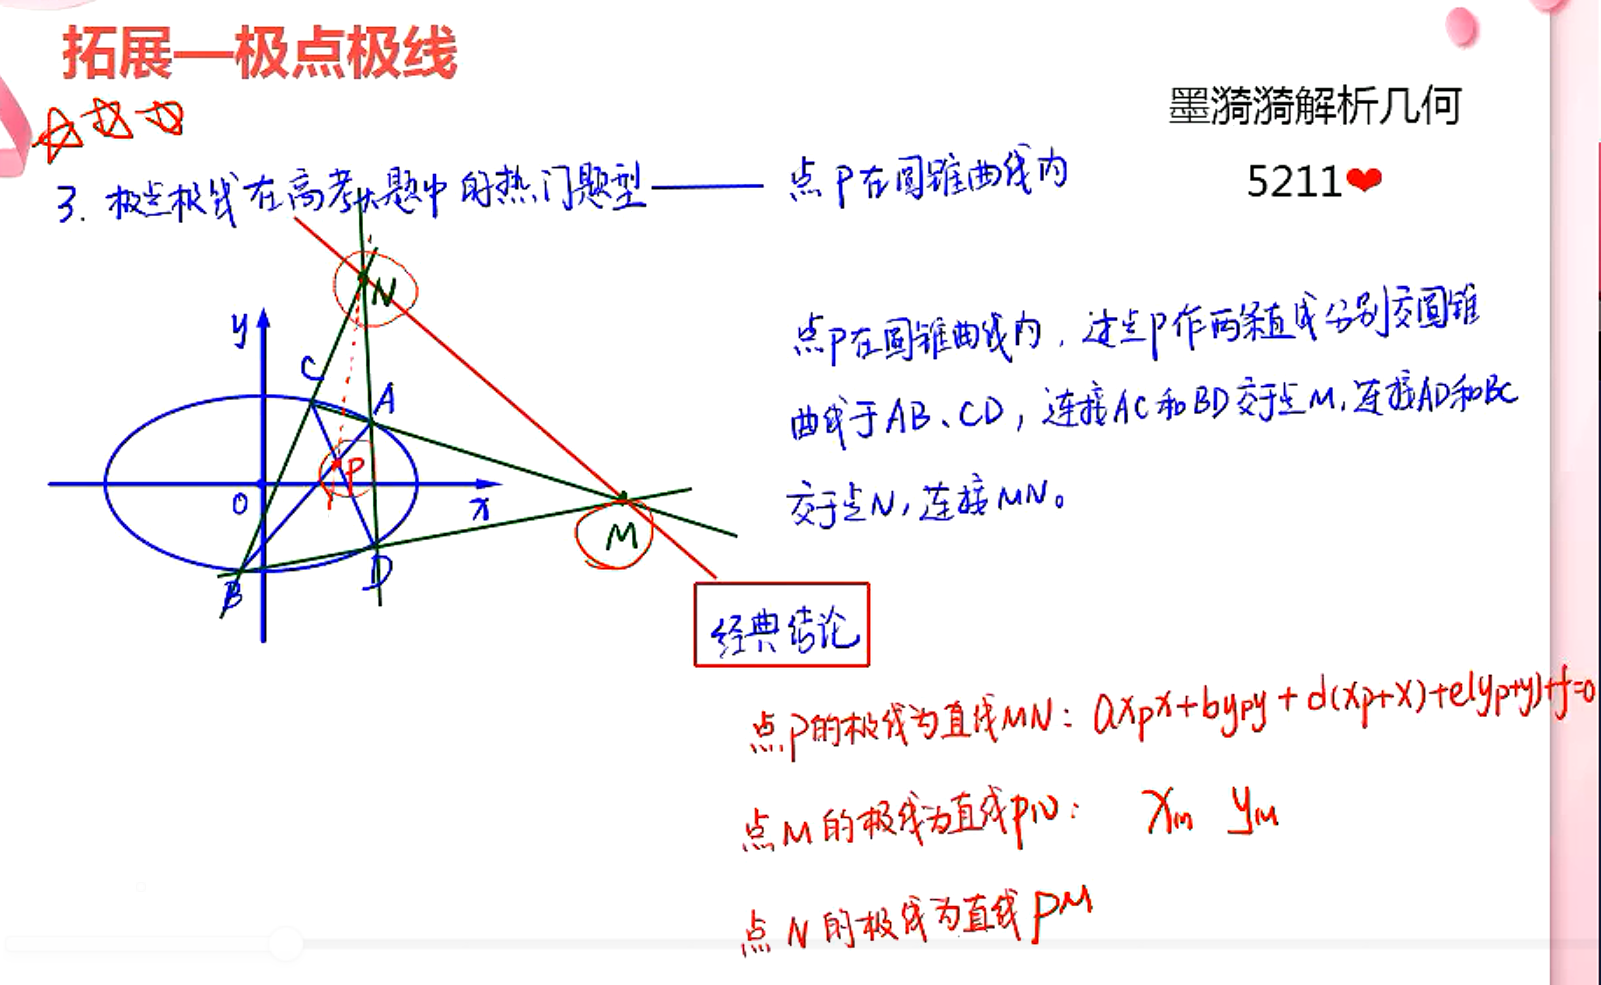 拓展—极点极线
墨漪漪解析几何
5211❤
3. 极点极线在高考大题中的热门题型—— 点P在圆锥曲线内
点P在圆锥曲线内，过点P作两条直线分别交圆锥
曲线于AB、CD，连接AC和BD交于点M，连接AD和BC
交于点N，连接MN。
N
y
C
A
P
O
x
M
B
D
经典结论
点P的极线为直线MN：axₚx+byₚy+d(xₚ+x)+e(yₚ+y)+f=0
点M的极线为直线PN： xₘ yₘ
点N的极线为直线PM